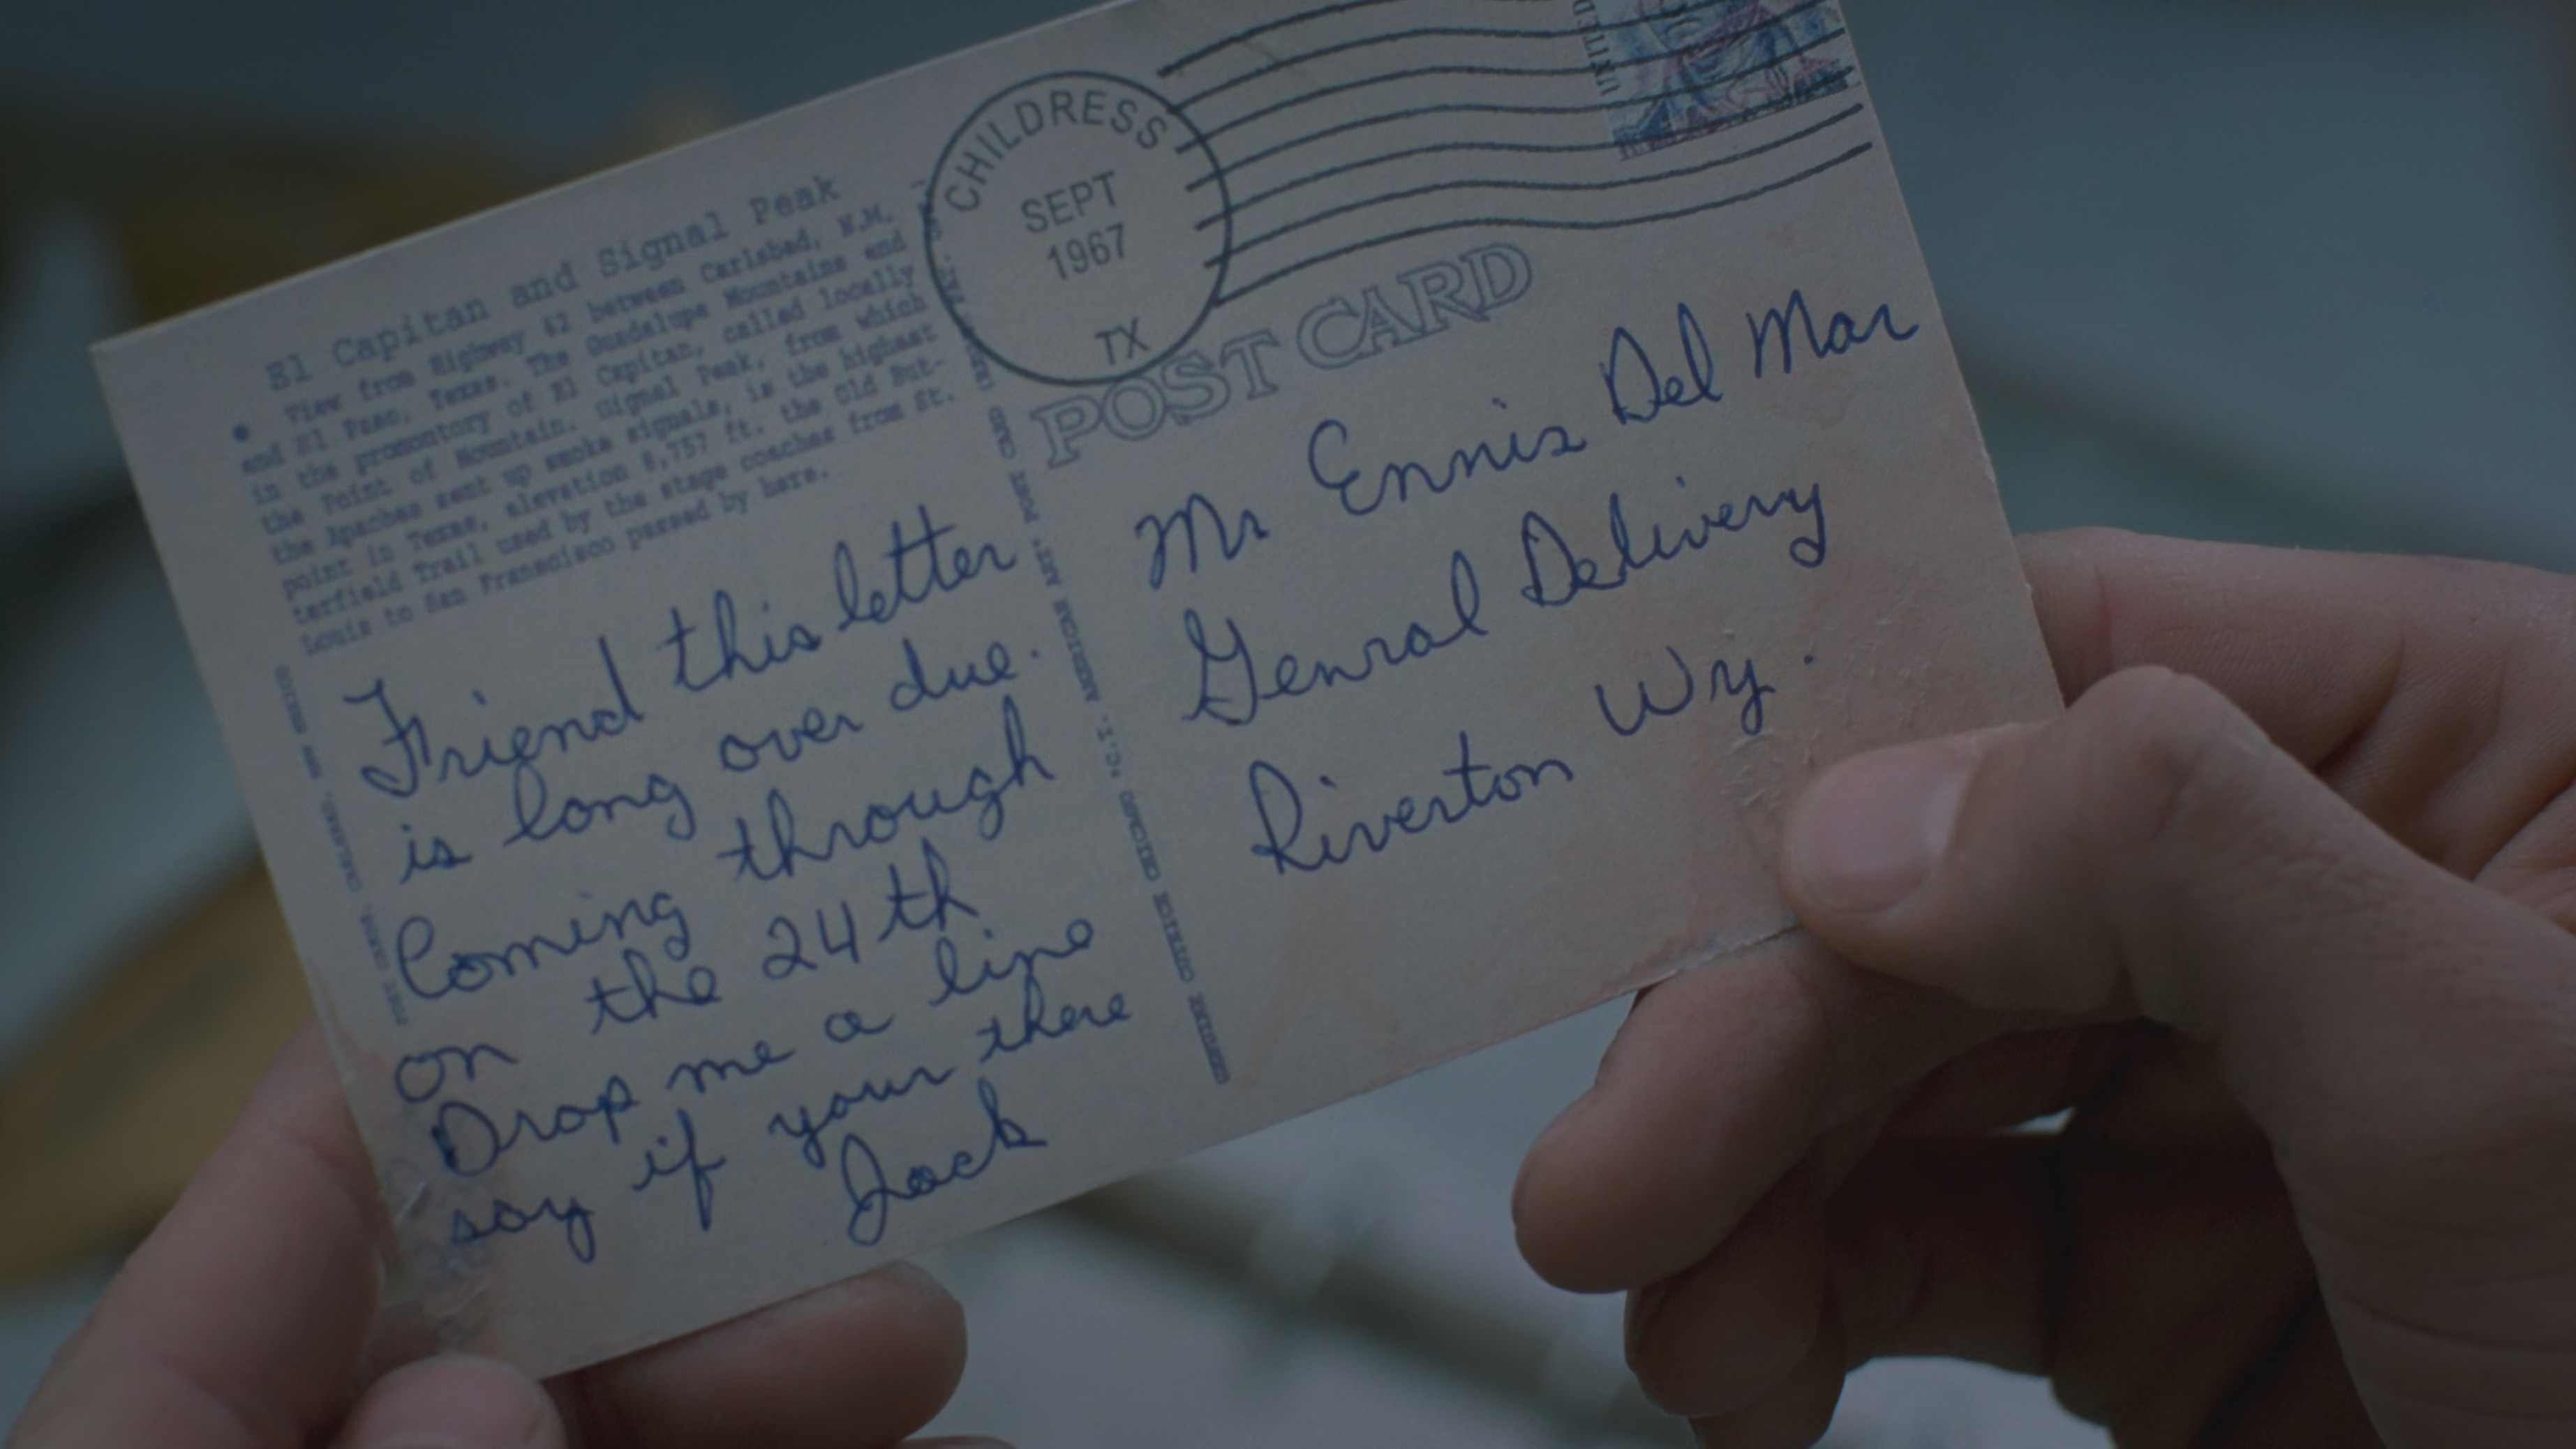 El Capitan and Signal Peak
View from Highway 62 between Carlsbad, N.M.
and El Paso, Texas. The Guadalupe Mountains end
in the promontory of El Capitan, called locally
the Point of Mountain. Signal Peak, from which
the Apaches sent up smoke signals, is the highest
point in Texas, elevation 8,757 ft. the Old But-
terfield Trail used by the stage coaches from St.
Louis to San Franscisco passed by here.
Friend this letter
is long over due.
Coming through
on the 24th
Drop me a line
say if your there
Jack
CHILDRESS
SEPT
1967
TX
UNITED
POST CARD
Mr Ennis Del Mar
Genral Delivery
Riverton Wy.